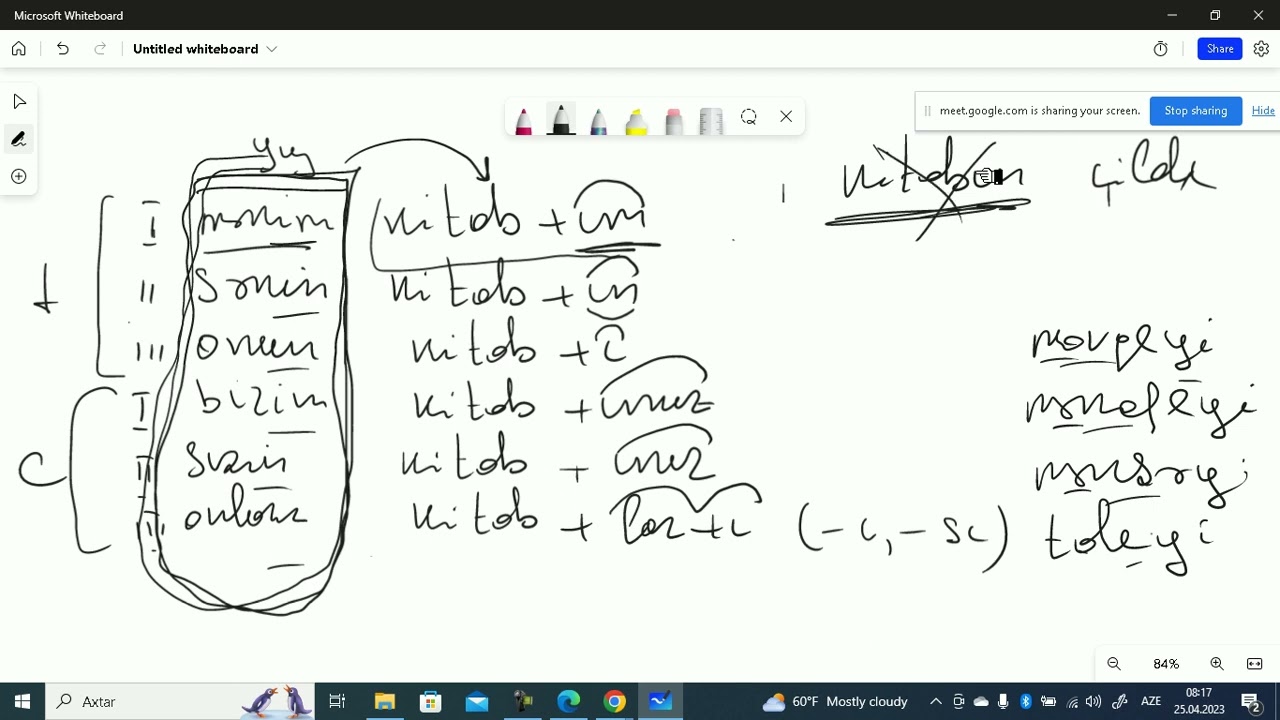 Microsoft Whiteboard
Untitled whiteboard
Share
meet.google.com is sharing your screen.
Stop sharing
Hide
yiy
I mənim kitab + ım
II sənin kitab + ın
III onun kitab + ı
I bizim kitab + ımız
II sizin kitab + ınız
III onların kitab + ları + ı (-ı, -sı)
çildə
mövqeyi
mənafeyi
mənbəyi
taleyi
84%
Axtar
60°F Mostly cloudy
AZE
08:17
25.04.2023
2